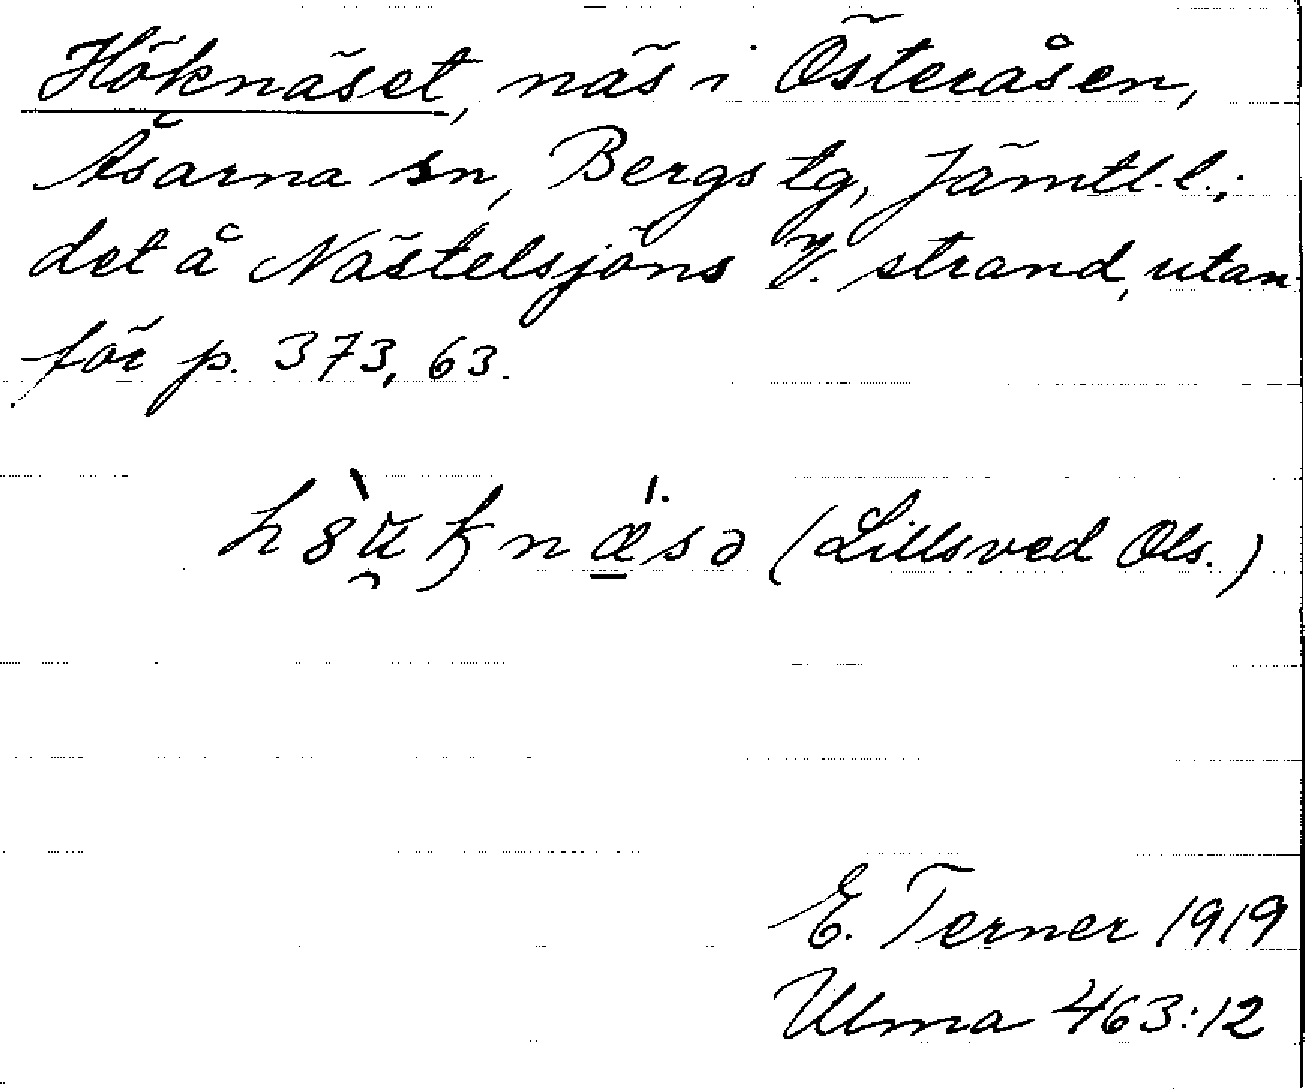 Höknäset, näs i Österåsen,
Åsarna sn, Bergs tg, Jämtl. l.;
det å Nästelsjöns V. strand, utan-
för p. 373, 63.
(Lillsved Ols.)
E. Terner 1919
Ulma 463:12